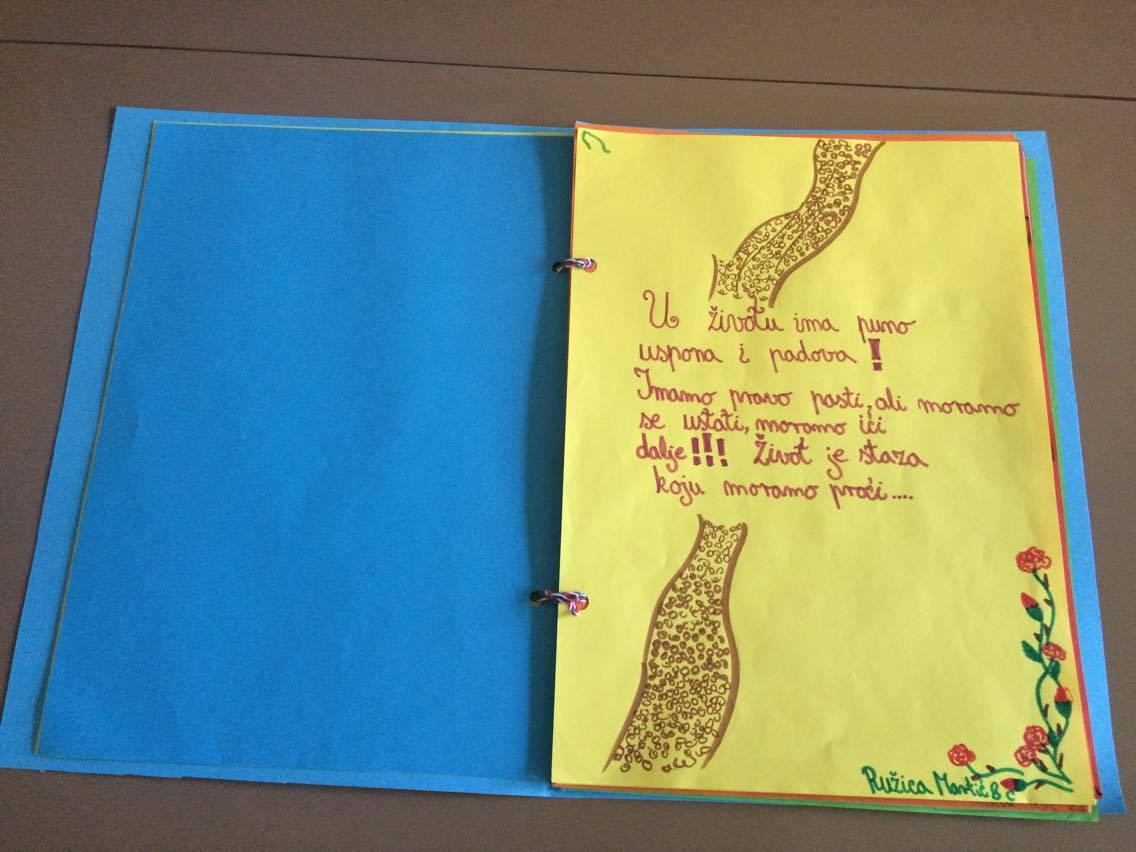 U životu ima puno
uspona i padova!
Imamo pravo pasti, ali moramo
se ustati, moramo ići
dalje!!! Život je staza
koju moramo proći....
Ružica Martić 8 c